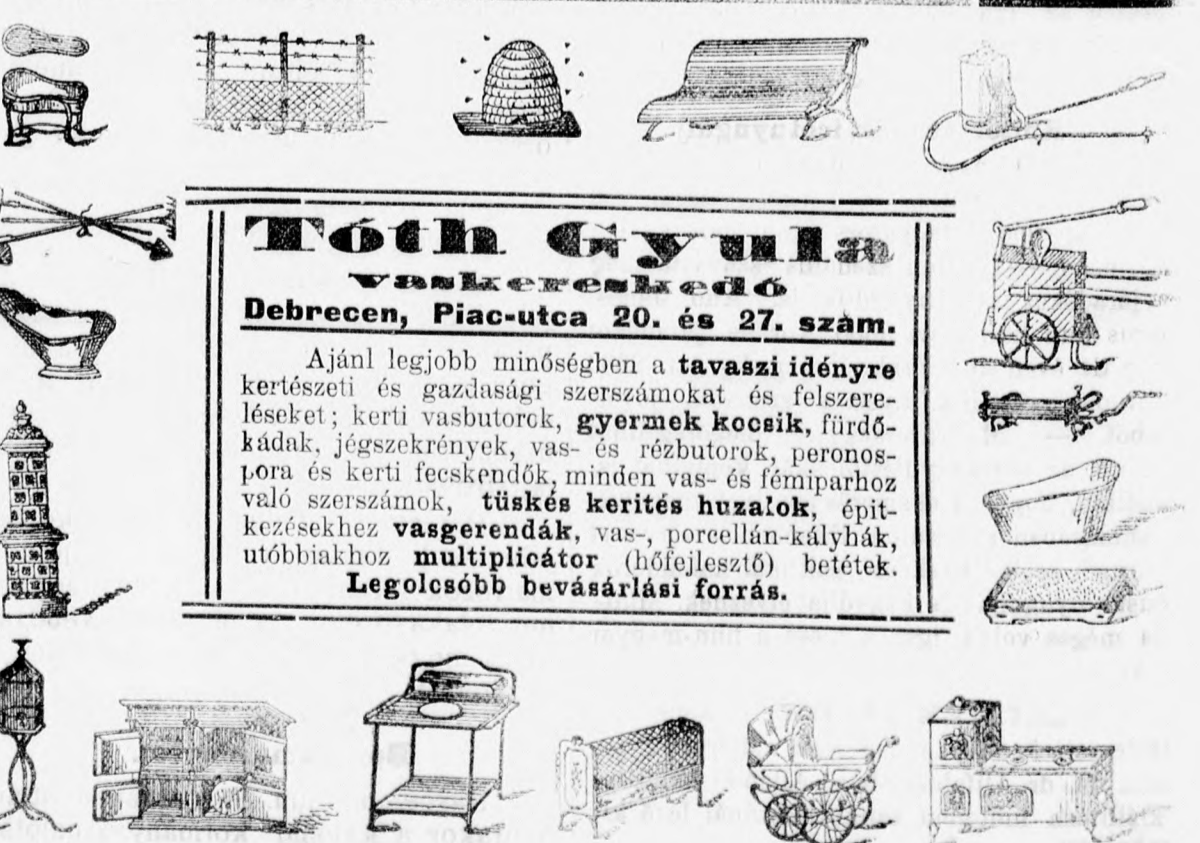 Tóth Gyula
vaskereskedő
Debrecen, Piac-utca 20. és 27. szám.
Ajánl legjobb minőségben a tavaszi idényre
kertészeti és gazdasági szerszámokat és felszere-
léseket; kerti vasbutorok, gyermek kocsik, fürdő-
kádak, jégszekrények, vas- és rézbutorok, peronos-
pora és kerti fecskendők, minden vas- és fémiparhoz
való szerszámok, tüskés kerités huzalok, épit-
kezésekhez vasgerendák, vas-, porcellán-kályhák,
utóbbiakhoz multiplicátor (hőfejlesztő) betétek.
Legolcsóbb bevásárlási forrás.